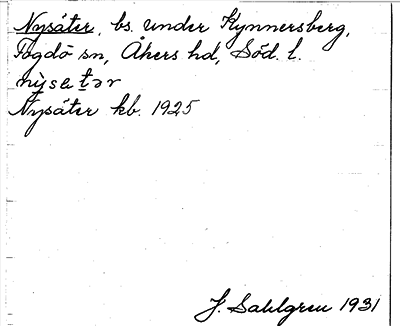 Nysäter, bs. under Kynnersberg,
Fogdö sn, Åkers hd, Söd. l.
nỳsetər
Nysäter kb. 1925
J. Sahlgren 1931